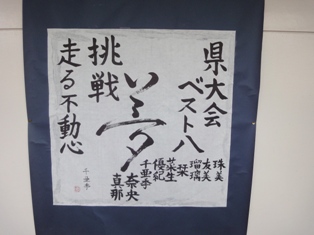 県大会
ベスト八
夢
挑戦
走る不動心
珠美
友美
瑠璃
栞
菜生
優紀
千亜季
奈央
真那
千亜季